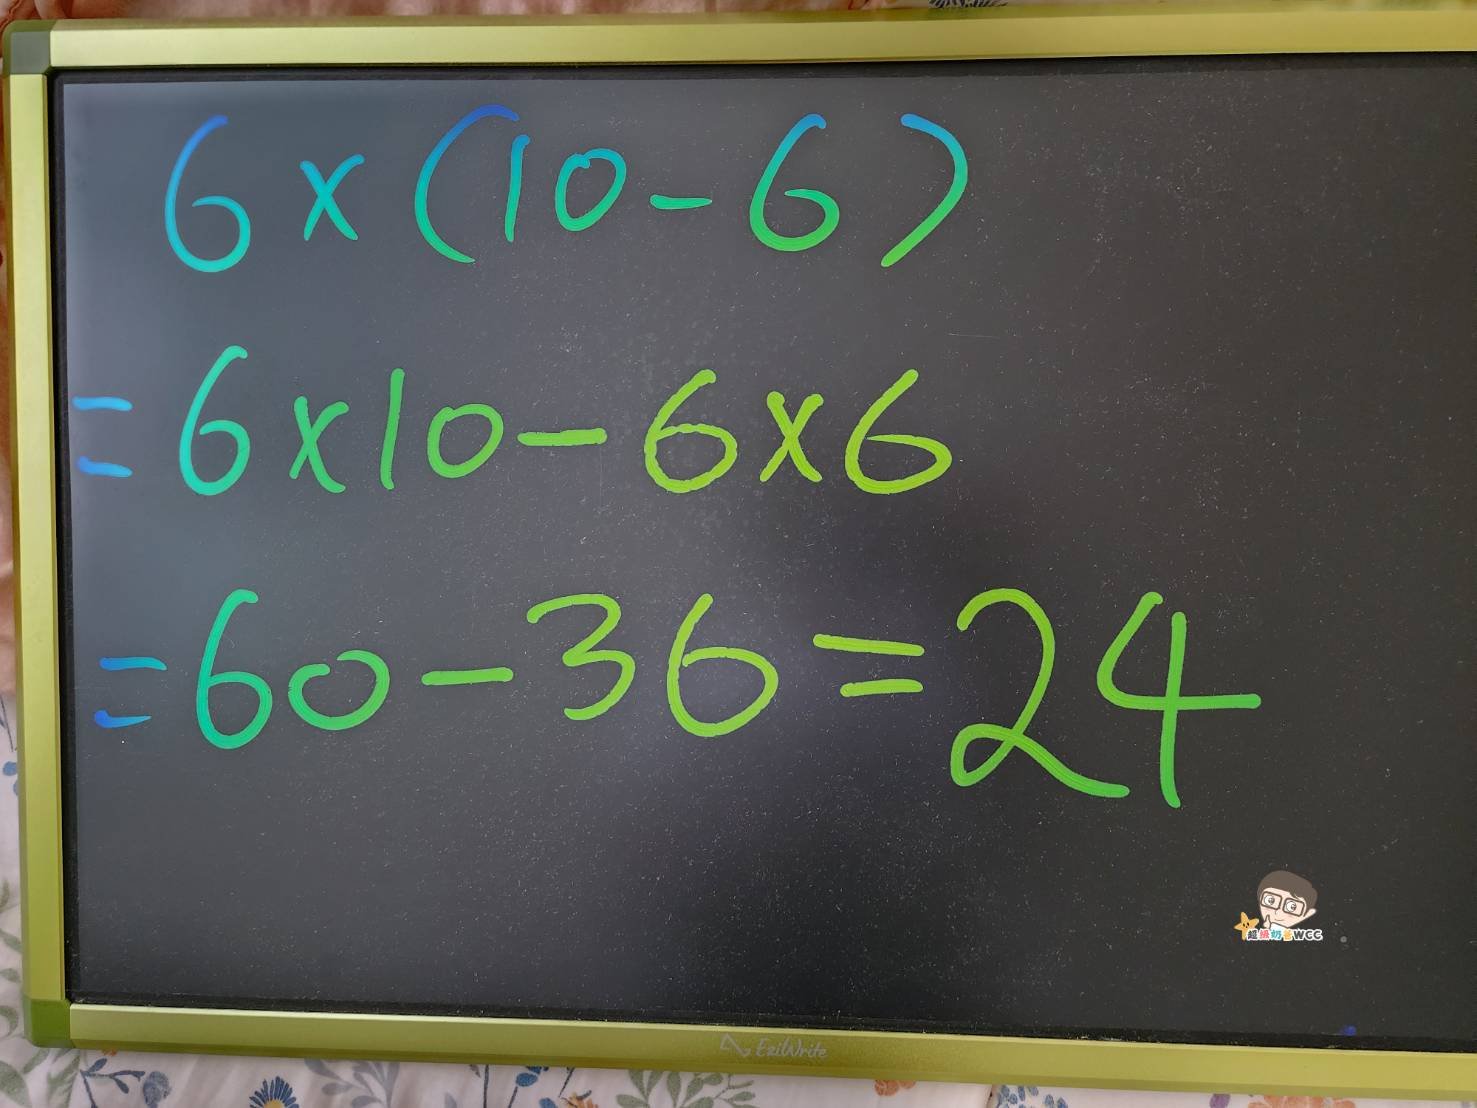 6×(10-6)
=6×10-6×6
=60-36=24
超級奶爸WCC
EziWrite